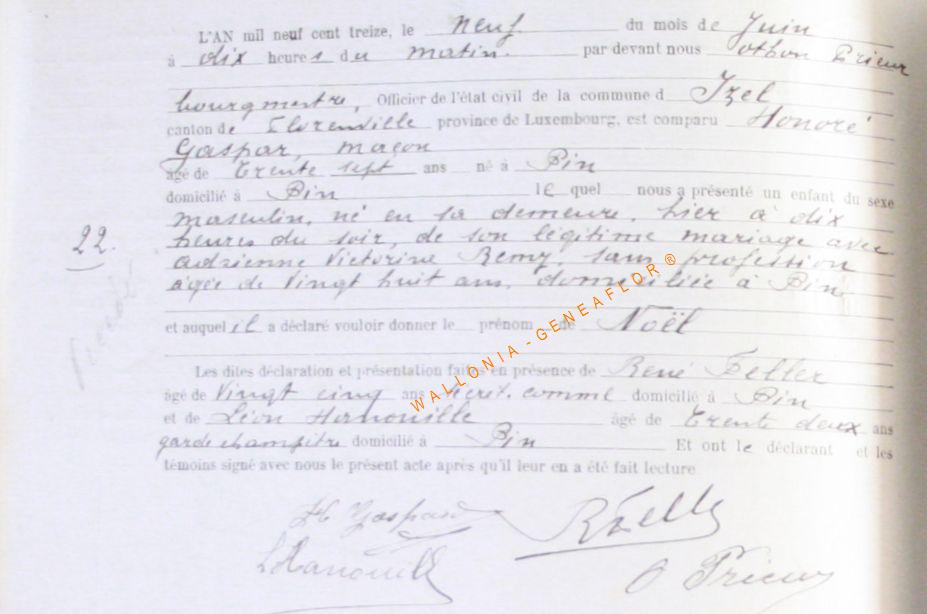 L'AN mil neuf cent treize, le neuf du mois de Juin
à dix heures du matin. par devant nous othon Prieur
bourgmestre, Officier de l'état civil de la commune d Izel
canton de Florenville province de Luxembourg, est comparu Honoré
Gaspar, maçon
âgé de trente sept ans né à Pin
domicilié à Pin lequel nous a présenté un enfant du sexe
masculin, né en sa demeure, hier à dix
22. heures du soir, de son légitime mariage avec
adrienne Victorine Remy, sans profession
âgée de vingt huit ans, domiciliée à Pin
et auquel il a déclaré vouloir donner le prénom de Noël
Les dites déclaration et présentation faites en présence de René Feller
âgé de vingt cinq ans secrét. comml domicilié à Pin
et de Léon Hanouille âgé de trente deux ans
garde champêtre domicilié à Pin Et ont le déclarant et les
témoins signé avec nous le présent acte après qu'il leur en a été fait lecture
H Gaspard RFeller
LHanouille O Prieur
WALLONIA - GENEAFLOR ®